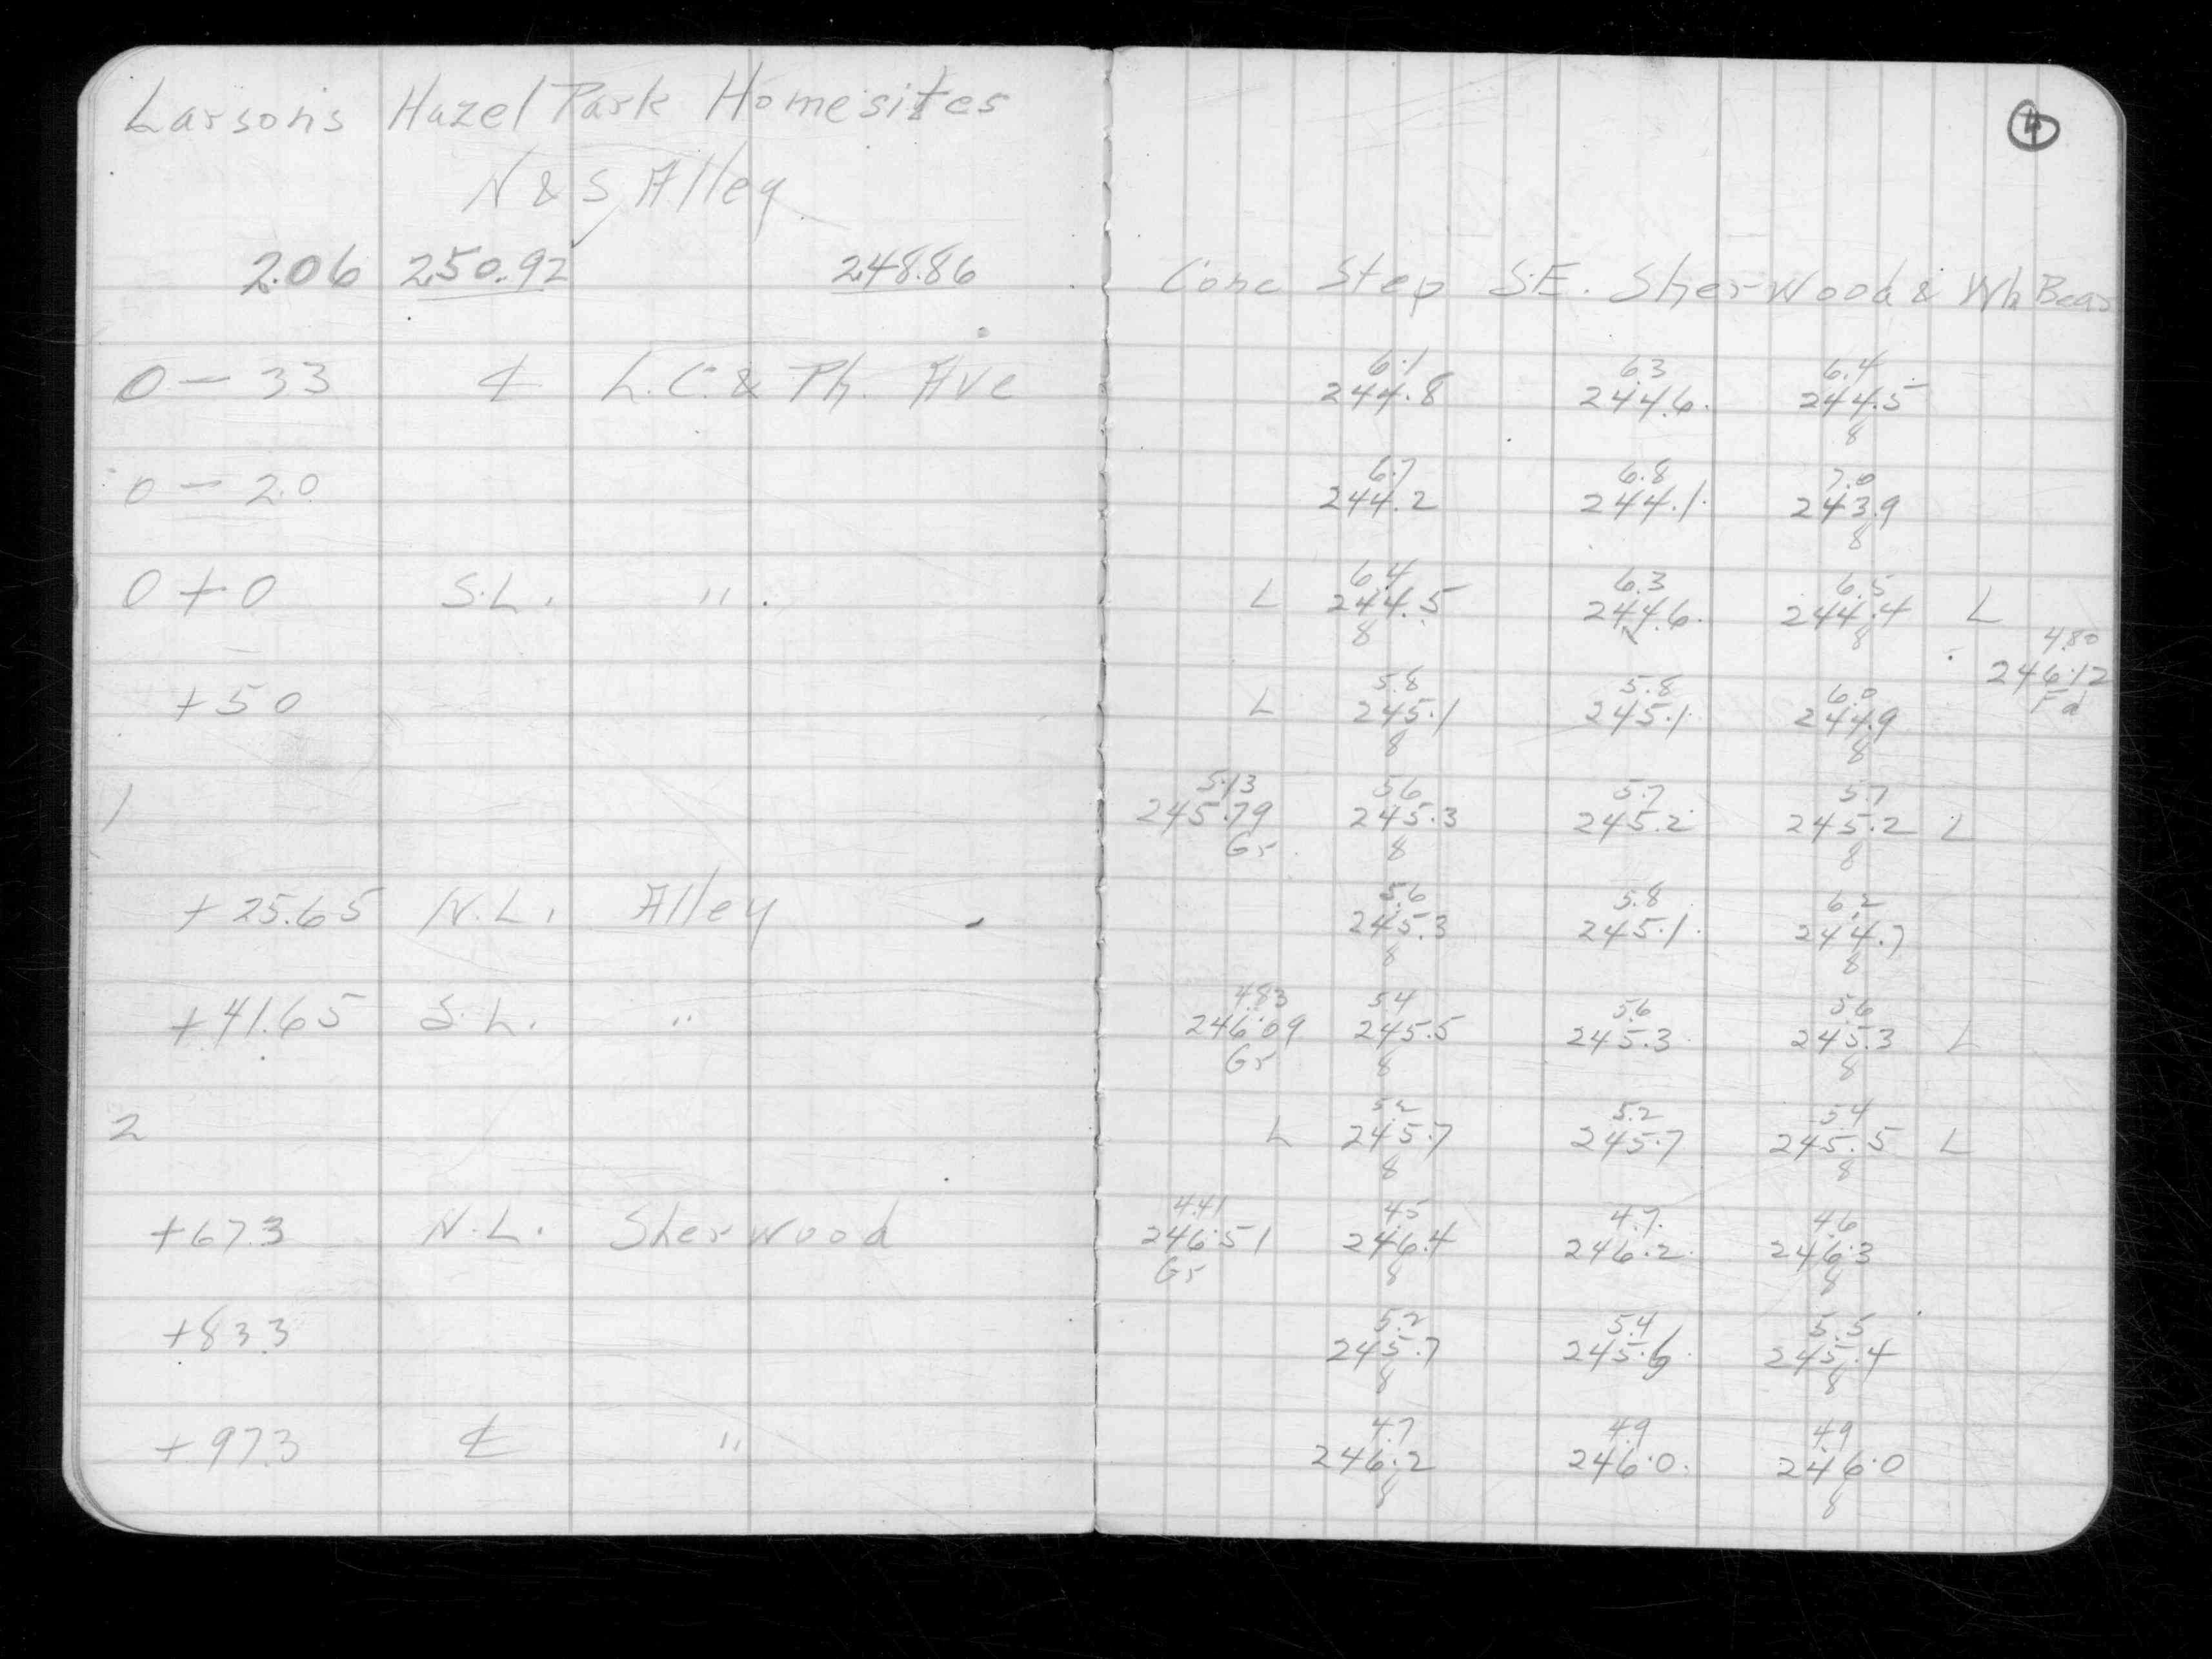 Larson's Hazel Park Homesites
N & S Alley
2.06 250.92 248.86
0 - 33 ℄ L.C. & Ph. Ave
0 - 20
0 + 0 S.L. "
+ 50
1
+ 25.65 N.L. Alley
+ 41.65 S.L. "
2
+ 67.3 N.L. Sherwood
+ 83.3
+ 97.3 ℄ "
4
Conc Step S.E. Sherwood & Wh Bear
6.1 6.3 6.4
244.8 244.6 244.5
8
6.7 6.8 7.0
244.2 244.1 243.9
8
6.4 6.3 6.5
L 244.5 244.6 244.4 L
8 8
4.80
246.12
Fd
5.8 5.8 6.0
L 245.1 245.1 244.9
8 8
5.13 5.6 5.7 5.7
245.79 245.3 245.2 245.2 L
Gr 8 8
5.6 5.8 6.2
245.3 245.1 244.7
8 8
4.83 5.4 5.6 5.6
246.09 245.5 245.3 245.3 L
Gr 8 8
5.2 5.2 5.4
L 245.7 245.7 245.5 L
8 8
4.41 4.5 4.7 4.6
246.51 246.4 246.2 246.3
Gr 8 8
5.2 5.4 5.5
245.7 245.5 245.4
8 8
4.7 4.9 4.9
246.2 246.0 246.0
8 8